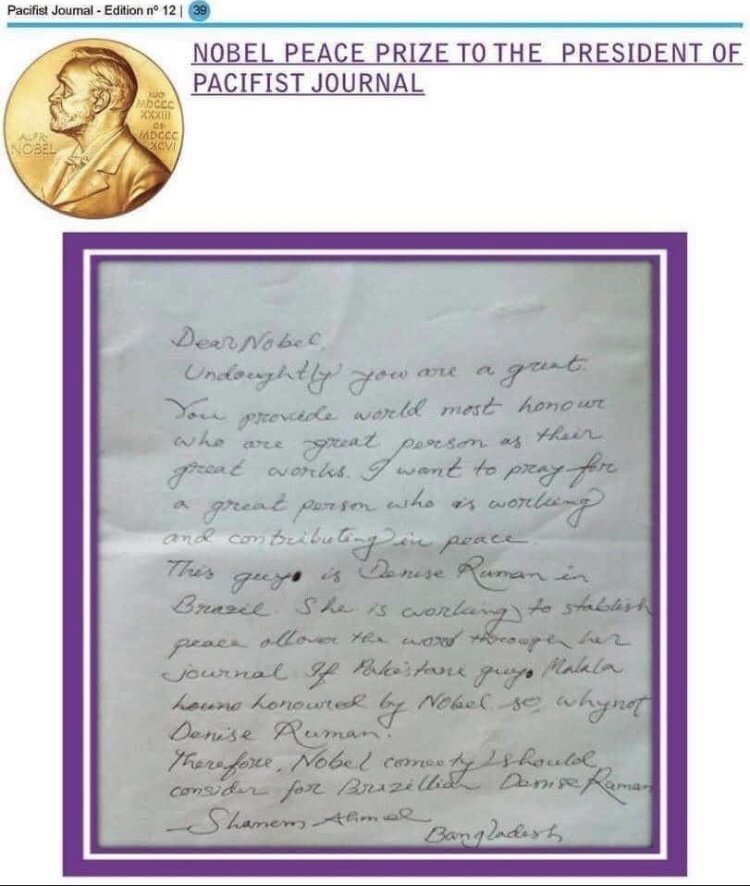 Pacifist Journal - Edition nº 12 | 39
NOBEL PEACE PRIZE TO THE PRESIDENT OF
PACIFIST JOURNAL
ALFR.
NOBEL
NAT.
MDCCC
XXXIII
OB.
MDCCC
XCVI
Dear Nobel,
Undoughtly you are a great.
You provide world most honour
who are great person as their
great works. I want to pray for
a great person who is working
and contributing in peace.
This guys is Denise Ruman in
Brazil. She is working to stablish
peace allover the word through her
journal If Pakistani guys Malala
honoured by Nobel so, whynot
Denise Ruman.
Therefore, Nobel should
consider for Brazillian Denise Ruman
Shamem Ahmed
Bangladesh